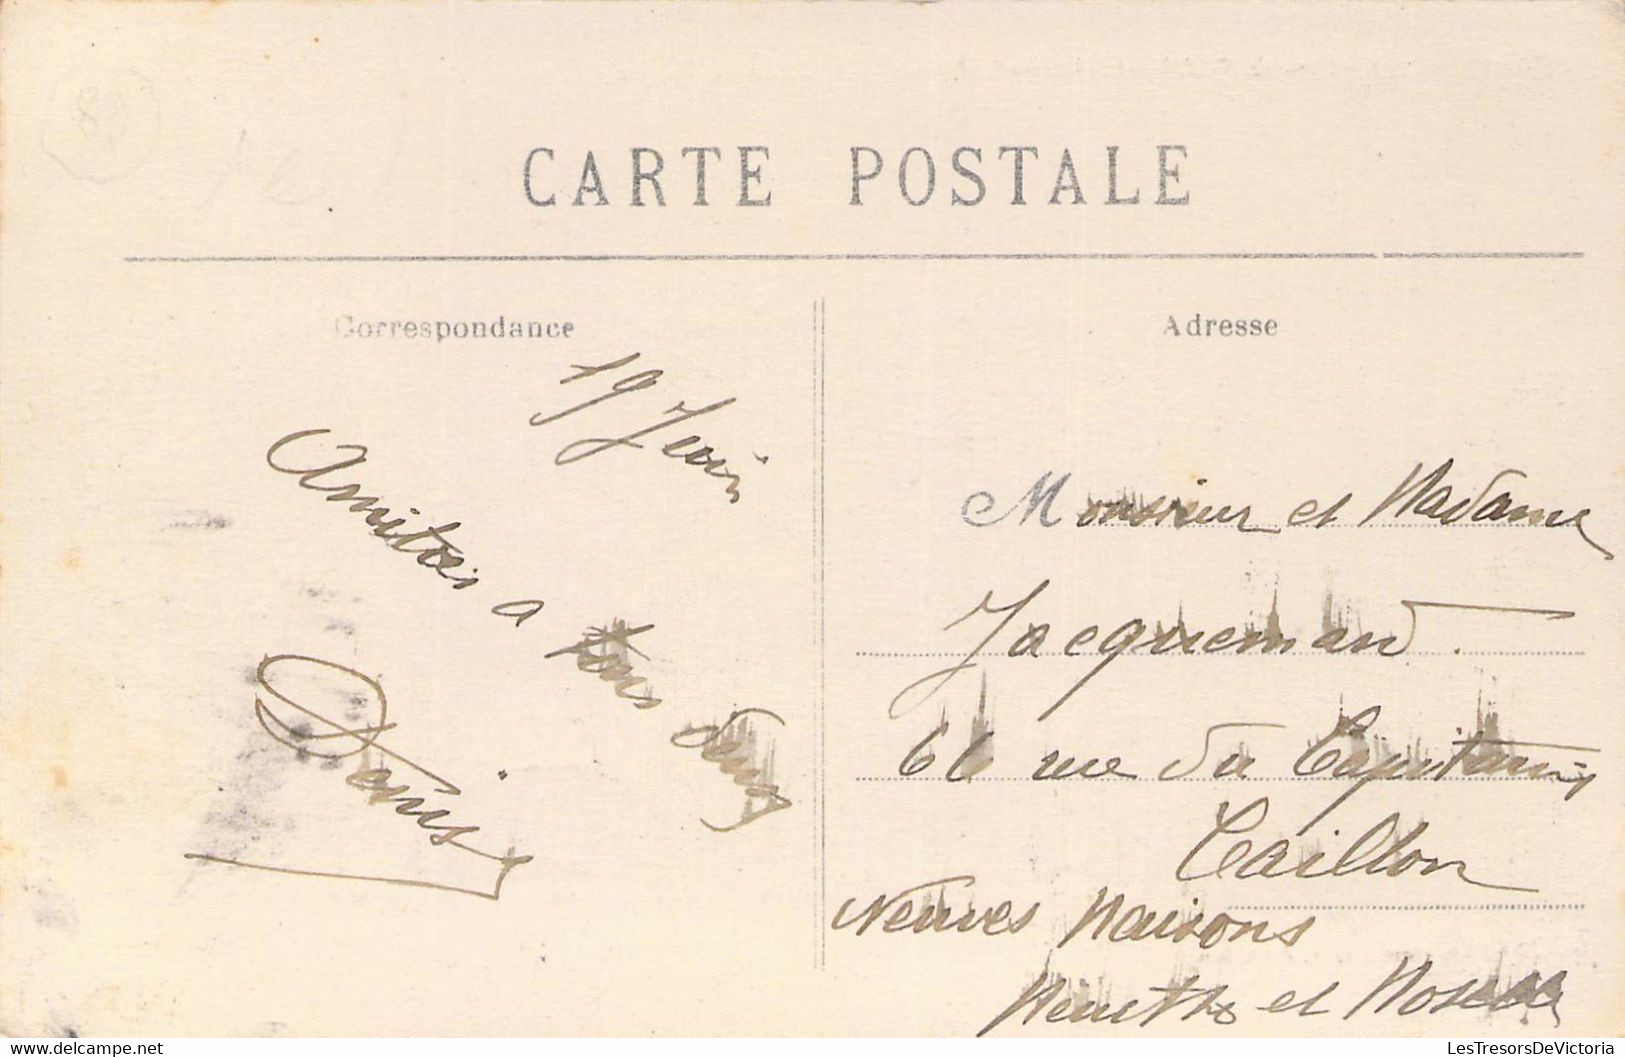 CARTE POSTALE
Correspondance
Adresse
19 Juin
Amitiés a tous deux
Denis
Monsieur et Madame
Jacquemard
66 rue du Capitaine
Caillon
Neuves Maisons
Meurthe et Moselle
LesTresorsDeVictoria - delcampe.net
LesTresorsDeVictoria